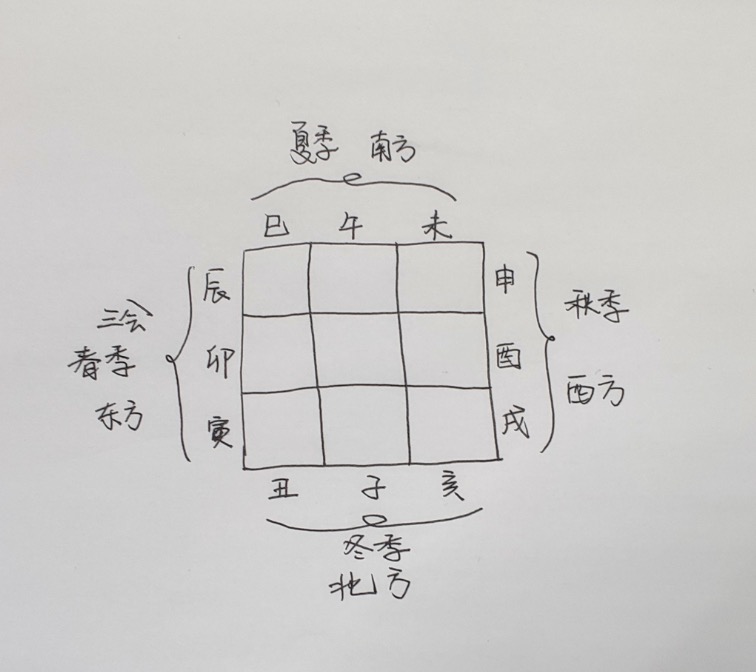 夏季 南方
巳 午 未
辰
卯
寅
三会
春季
东方
申
酉
戌
秋季
西方
丑 子 亥
冬季
北方